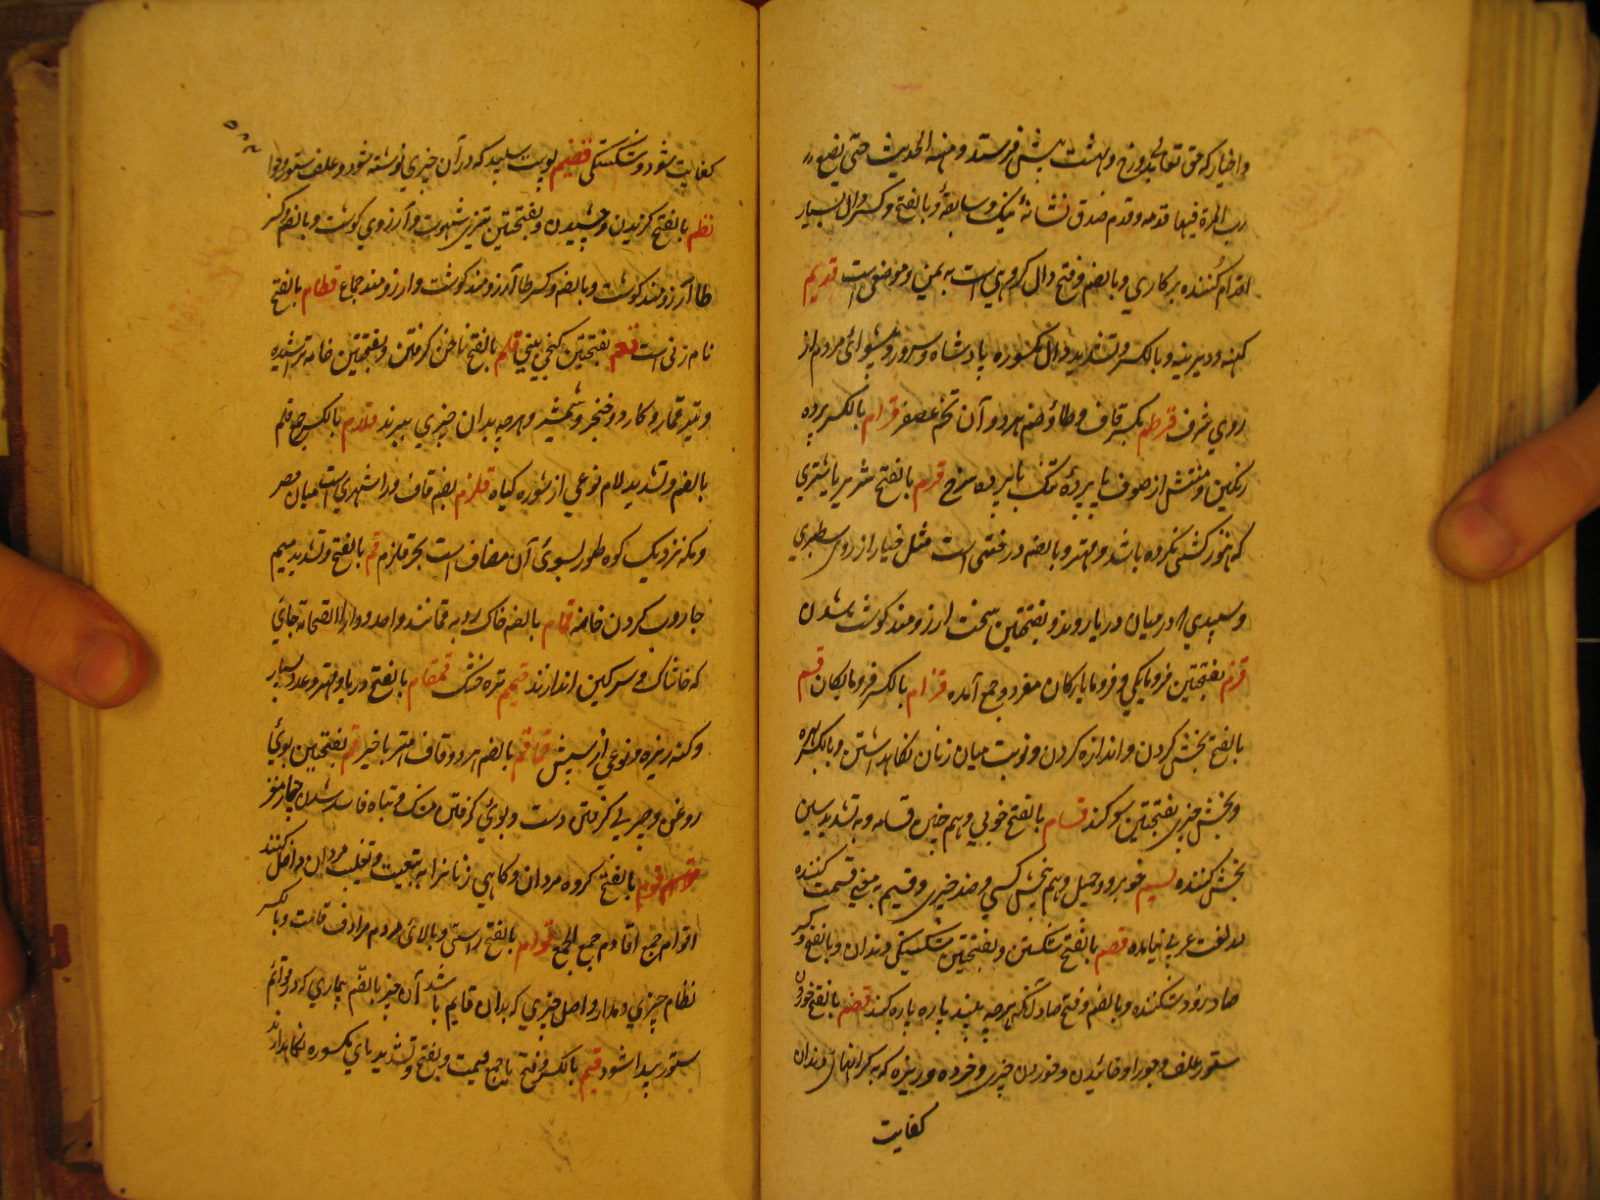 واخیار که حق تعالی بدوزخ و بهشت پیش فرستد و منه الحدیث حتی یضع
رب العزة فیها قدمه و قدم صدق نشانهٔ نیک و سابقهٔ و بالفتح و کسر دال بسیار
اقدام کننده بر کاری و بالضم و فتح دال گروهی است به یمن و موضعی است قدیم
کهنه و دیرینه و بالکسر و تشدید دال مکسوره پادشاه و سرور و پیشوای مردم از
روی شرف قرطم بکسر قاف و طا و ضم هر دو آن تخم عصفر قرام بالکسر پرده
رنگین و منقش از صوف یا پردهٔ تنک یا پرده سرخ قرم بالفتح شتر نر یا شتری
که هنوز کشی نکرده باشد و مهتر و بالضم درختی است مثل خیار از روی سطبری
و سپیدی در میان دریا روید و بفتحتین سخت ارزومند گوشت شدن
قزم بفتحتین فرومایگی و فرومایگان مفرد و جمع آمده قزام بالکسر فرومایگان قسم
بالفتح بخش کردن و اندازه کردن و نوبت میان زنان نگاهداشتن و بالکسر بهره
و بخش چیزی بفتحتین سوگند قسام بالفتح خوبی و هم چنین قسامه و به تشدید سین
بخش کننده قسیم خوبرو و جمیل و هم بخش کسی و ضد چیزی و قسیم به معنی قسمت کننده
در لغت عربی نیامده قصم بالفتح شکستن و بفتحتین شکستگی دندان و بالفتح و کسر
صاد زود شکننده و بالضم و فتح صاد آنکه هرچه بیند پاره پاره کند قضم بالفتح خوردن
ستور علف و جو را و خائیدن و خوردن چیزی و خرده و ریزه که به کرانهای دندان
کفایت
۵۸۲
کفایت شود و شکستگی قضیم پوست سپید که در آن چیزی نوشته شود و علف ستور و جو
قطم بالفتح گزیدن و چشیدن و بفتحتین تیزی شهوت و آرزوی گوشت و بالفتح و کسر
طا آرزومند گوشت و بالضم و کسر طا آرزومند گوشت و ارزومند جماع قطام بالفتح
نام زنی است قعم بفتحتین کجی بینی قلم بالفتح ناخن گرفتن و بفتحتین خامه تراشیده
و تیر قمار و کارد و خنجر و شمشیر و هرچه بدان چیزی ببرند قلام بالکسر جمع قلم
بالضم و تشدید لام نوعی از شوره گیاه قلزم بضم قاف و زا شهری است میان مصر
و مکه نزدیک کوه طور بسوی آن مضاف است بحر قلزم قم بالفتح و تشدید میم
جاروب کردن خانه قمام بالضم خاک روبه قمامه مانند واحد و دار القمامه جای
که خاشاک و سرگین اندازند قمیم تره خشک قمقام بالفتح دریا و مهتر و عدد بسیار
و کنه ریزه و نوعی از سپش قماقم بالضم هر دو قاف مهتر با خیر قنم بفتحتین بوی
روغن و چربی گرفتن دست و بوی گرفتن مشک و تباه و فاسد شدن چهار مغز
قوم بالفتح گروه مردان و گاهی زنانرا به تبعیت و تغلیب مردان داخل کنند
اقوام جمع اقاوم جمع الجمع قوام بالفتح راستی و بالای مردم مرادف قامت و بالکسر
نظام چیزی و مدار و اصل چیزی که بدان قایم باشد آن چیز بالضم بیماری که در قوائم
ستور پیدا شود قیم بالکسر و فتح یا جمع قیمت و بفتح و تشدید یای مکسوره نگاهدارنده